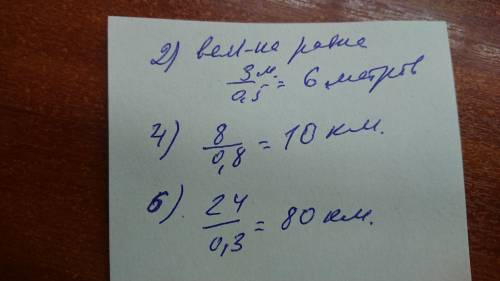 2) вел-на равна
3м. / 0,5 = 6 метров
4) 8 / 0,8 = 10 км.
6) 24 / 0,3 = 80 км.